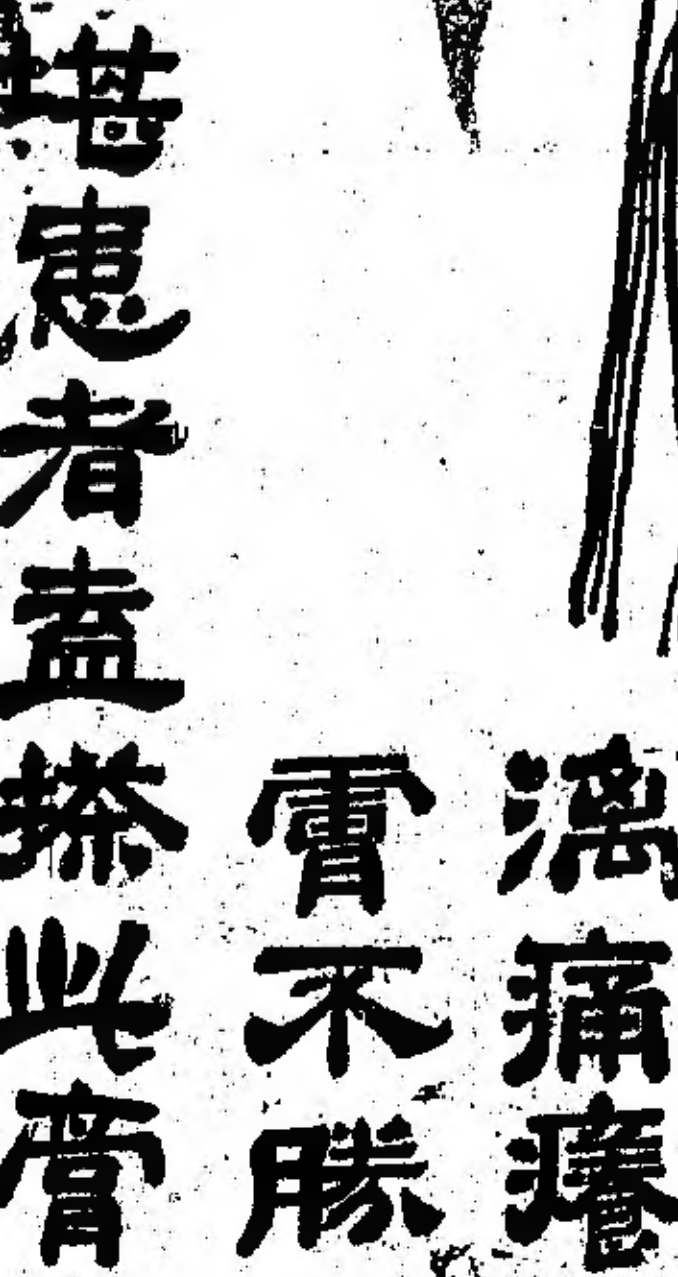 漓痛癢
霄不勝
堪患者盍搽此膏